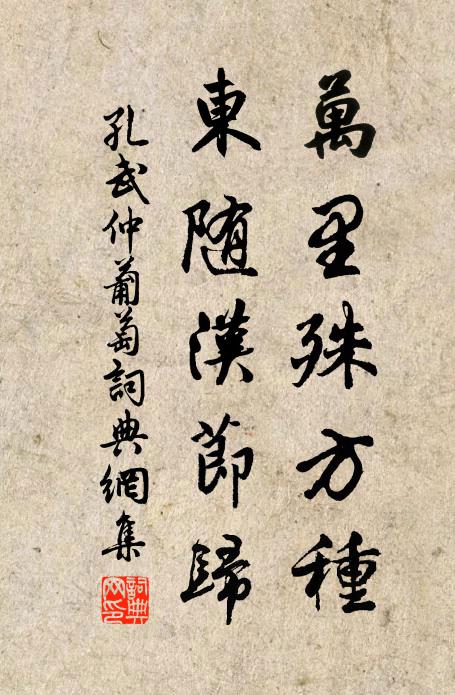 萬里殊方種
東随漢節歸
孔武仲葡萄詞典網集
詞典網印